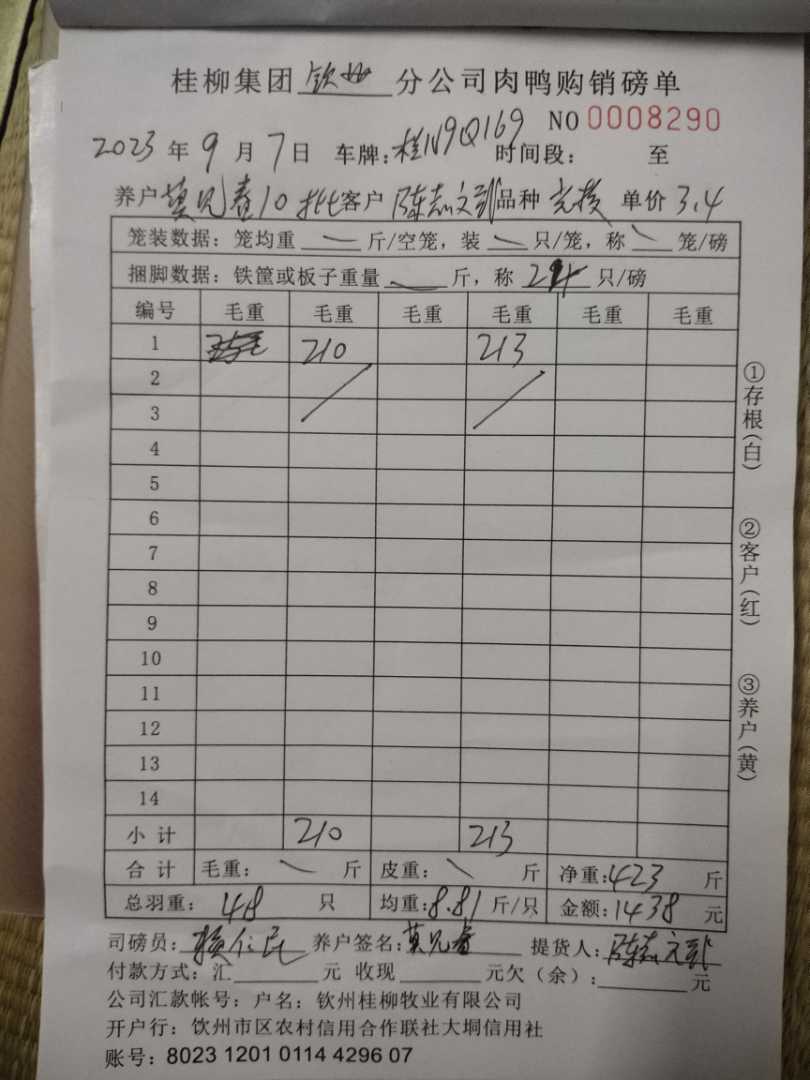 桂柳集团 钦州 分公司肉鸭购销磅单
NO 0008290
2023 年 9 月 7 日 车牌: 桂N9Q169 时间段: 至
养户 莫兄春10批 客户 陈志文 品种 单价 3.4
笼装数据: 笼均重 斤/空笼, 装 只/笼, 称 笼/磅
捆脚数据: 铁筐或板子重量 斤, 称 24 只/磅
编号 毛重 毛重 毛重 毛重 毛重 毛重
1 210 213
2
3
4
5
6
7
8
9
10
11
12
13
14
小 计 210 213
合 计 毛重: 斤 皮重: 斤 净重: 423 斤
总羽重: 48 只 均重: 8.81 斤/只 金额: 1438 元
司磅员: 养户签名: 莫兄春 提货人: 陈志文
付款方式: 汇 元 收现 元欠(余): 元
公司汇款帐号: 户名: 钦州桂柳牧业有限公司
开户行: 饮州市区农村信用合作联社大垌信用社
账号: 8023 1201 0114 4296 07
①存根(白)
②客户(红)
③养户(黄)